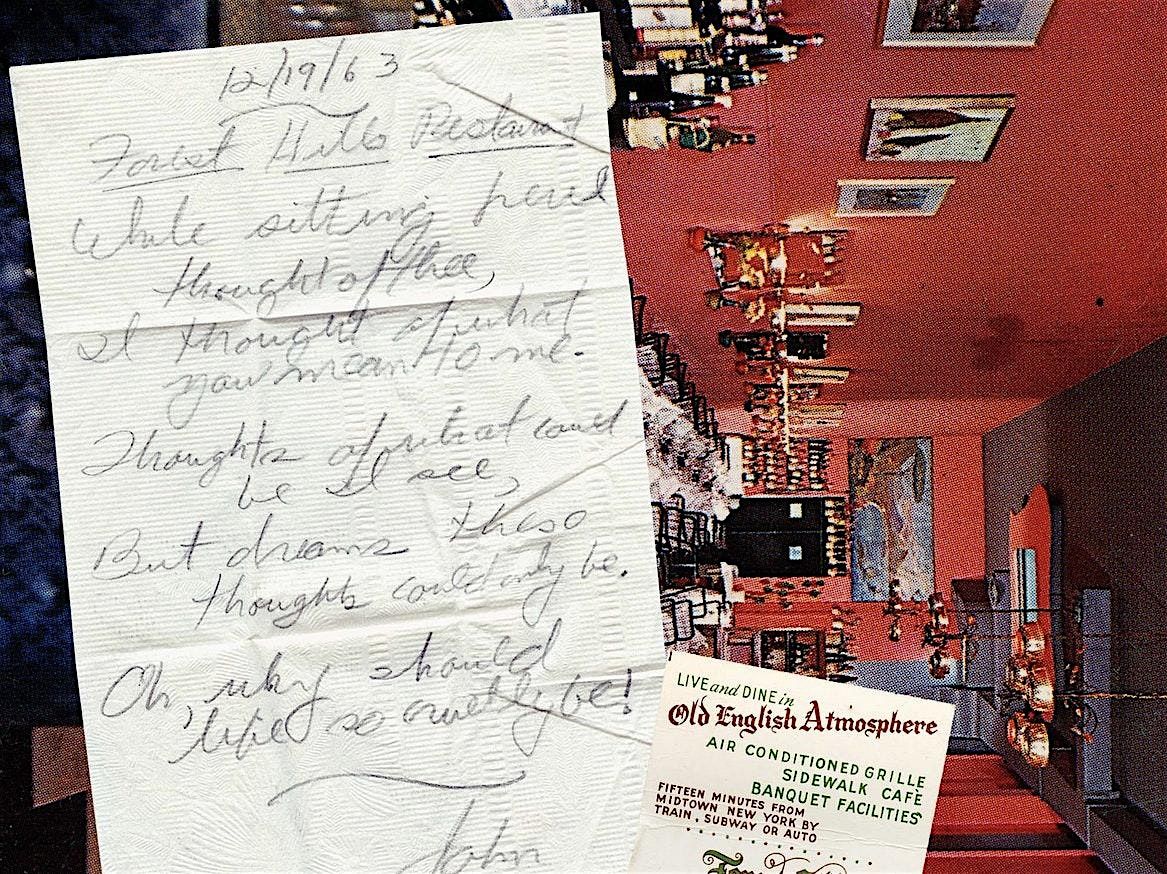 12/19/63
Forest Hills Restaurant
While sitting here I
thought of thee,
I thought of what
you mean to me.
Thoughts of what could
be I see,
But dreams these
thoughts could only be.
Oh, why should
life so cruelly be!
John
LIVE and DINE in
Old English Atmosphere
AIR CONDITIONED GRILLE
SIDEWALK CAFÈ
BANQUET FACILITIES
FIFTEEN MINUTES FROM
MIDTOWN NEW YORK BY
TRAIN, SUBWAY OR AUTO